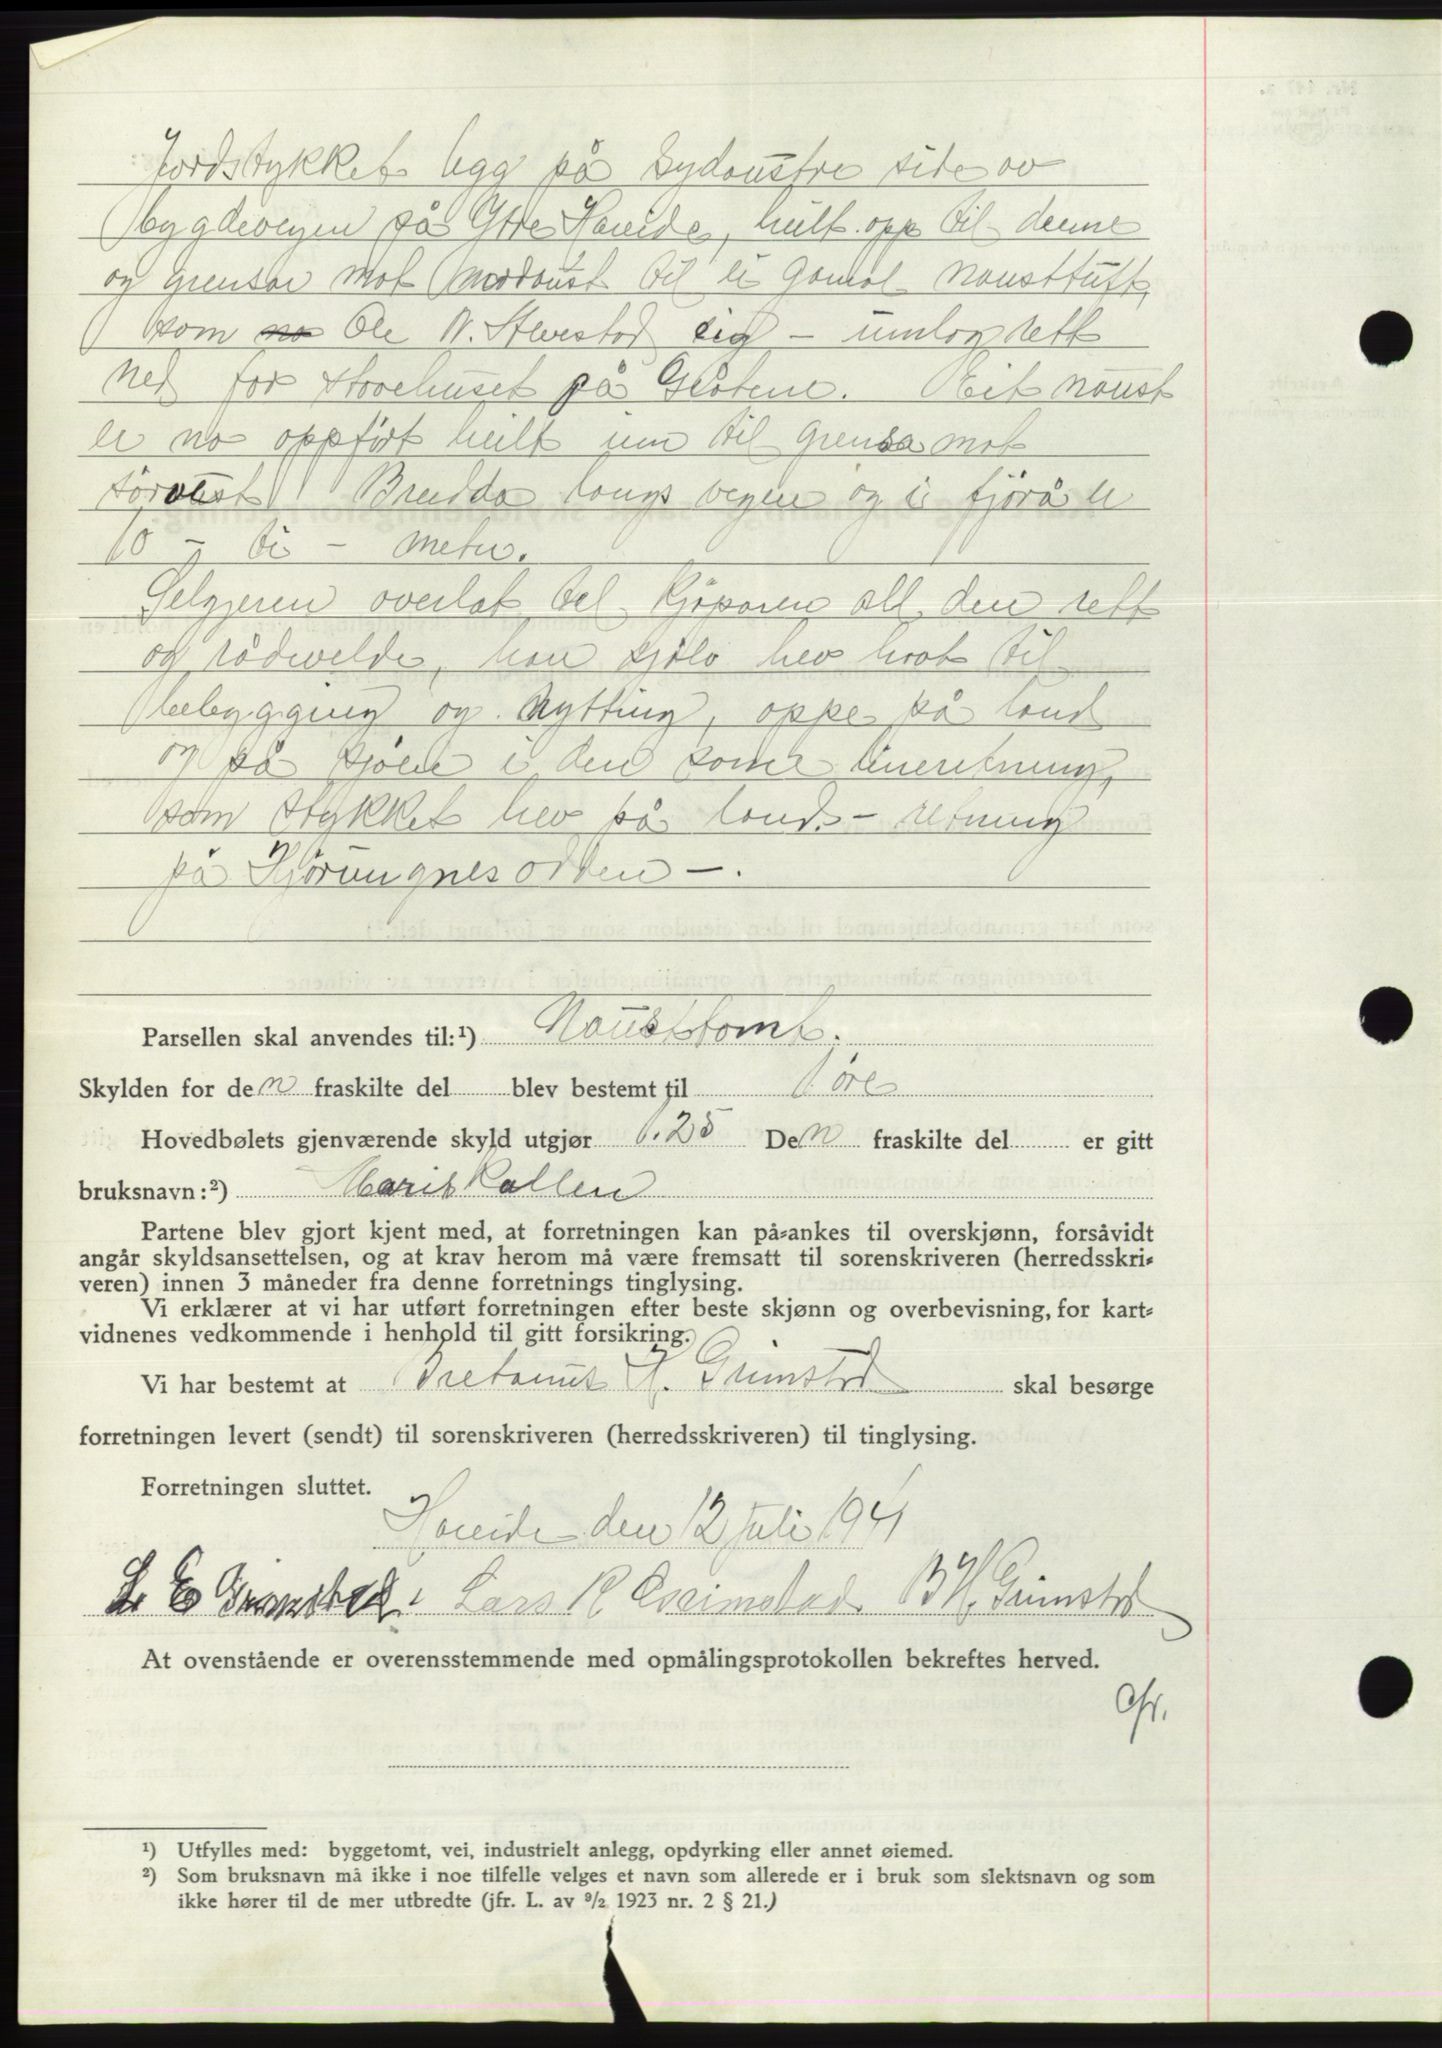 Jordstykket ligg på sydaustre side av
bygdevegen på Ytre Hareide, heilt opp til denne
og grensar mot nordaust til ei gamal nausttuft,
som Ole N. Alvestad eig – umlag rett
ned for stovehuset på Geilane. Eit naust
er no oppført heilt inn til grensa mot
sørvest. Breidda langs vegen og i fjøra er
10 – ti – meter.
Selgjeren overlet til kjøparen all den rett
og rådvelde, han sjølv hev havt til
bebygging og nytting, oppe på land
og på sjøen i den same lineretning,
som stykket hev på land. – retning
på Hjørungnesodden –.
Parsellen skal anvendes til:¹) Nausttomt.
Skylden for den fraskilte del blev bestemt til 1 øre
Hovedbølets gjenværende skyld utgjør 1.25 Den fraskilte del er gitt
bruksnavn:²) Marihallen
Partene blev gjort kjent med, at forretningen kan på-ankes til overskjønn, forsåvidt
angår skyldsansettelsen, og at krav herom må være fremsatt til sorenskriveren (herredsskri-
veren) innen 3 måneder fra denne forretnings tinglysing.
Vi erklærer at vi har utført forretningen efter beste skjønn og overbevisning, for kart-
vidnenes vedkommende i henhold til gitt forsikring.
Vi har bestemt at Bretanus H. Grimstad skal besørge
forretningen levert (sendt) til sorenskriveren (herredsskriveren) til tinglysing.
Forretningen sluttet.
Hareide den 12 juli 1941
L E Grimstad. Lars R Grimstad. B H. Grimstad
At ovenstående er overensstemmende med opmålingsprotokollen bekreftes herved.
¹) Utfylles med: byggetomt, vei, industrielt anlegg, opdyrking eller annet øiemed.
²) Som bruksnavn må ikke i noe tilfelle velges et navn som allerede er i bruk som slektsnavn og som
ikke hører til de mer utbredte (jfr. L. av 9/2 1923 nr. 2 § 21.)